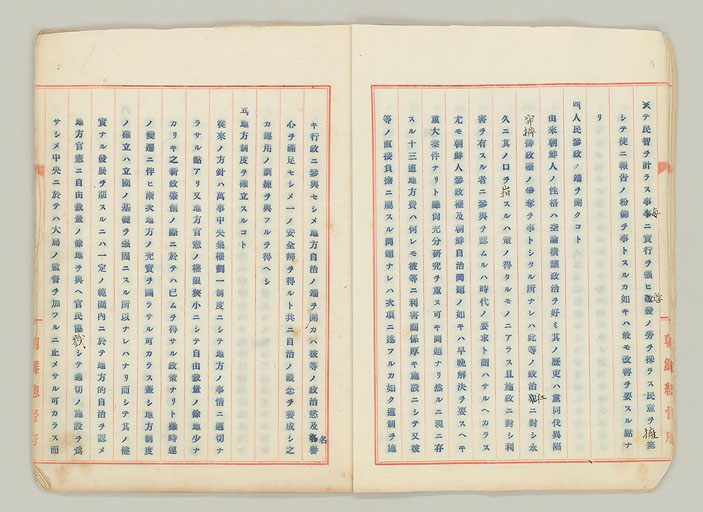 テ民智ヲ計ラス事毎ニ實行ヲ強ヒ啓發ノ勞ヲ採ラス民意ヲ擁塞
シテ徒ニ報告ノ粉飾ヲ事トスルカ如キハ最モ改善ヲ要スル點ナ
リ
四、人民參政ノ端ヲ開クコト
由來朝鮮人ノ性格ハ空論橫議政治ヲ好ミ其ノ歷史ハ黨同伐異陷
穽擠排政權ノ爭奪ヲ事トシタル所ナレハ此等ノ政治犯ニ對シ永
久ニ其ノ口ヲ箝スルハ策ノ得タルモノニアラス且施政ニ對シ利
害ヲ有スル者ニ參與ヲ認ムルハ時代ノ要求ト謂ハサルヘカラス
尤モ朝鮮人參政權及朝鮮自治問題ノ如キハ早晩解決ヲ要スヘキ
重大案件ナリト雖尙充分硏究ヲ重ヌ可キ問題ナリ然ルニ現ニ存
スル十三道地方費ハ何レモ彼等ニ利害關係厚キ施設ニシテ又彼
等ノ直接負擔ニ屬スル問題ナレハ次項ニ述フルカ如ク道制ヲ施
朝鮮總督府
キ行政ニ參與セシメ地方自治ノ端ヲ開カハ彼等ノ政治慾及名譽
心ヲ滿足セシメ一ノ安全辨ヲ得ルト共ニ自治ノ觀念ヲ養成シ之
カ運用ノ訓練ヲ與フルヲ得ヘシ
五、地方制度ヲ確立スルコト
從來ノ方針ハ萬事中央集權劃一制度ニシテ地方ノ事情ニ適切ナ
ラサル點アリ又地方官憲ノ權限狹小ニシテ自由裁量ノ餘地少ナ
カリキ之新政肇創ノ際ニ於テハ已ムヲ得サル政策ナリト雖時運
ノ變遷ニ伴ヒ漸次地方ノ充實ヲ圖ラサル可カラス蓋シ地方制度
ノ確立ハ立國ノ基礎ヲ强固ニスル所以ナレハナリ而シテ其ノ健
實ナル發展ヲ期スルニハ一定ノ範圍內ニ於テ地方的自治ヲ認メ
地方官憲ニ自由裁量ノ餘地ヲ與ヘ官民協戮シテ適切ノ施設ヲ爲
サシメ中央ニ於テハ大局ノ監督ヲ加フルニ止メサル可カラス而
朝鮮總督府